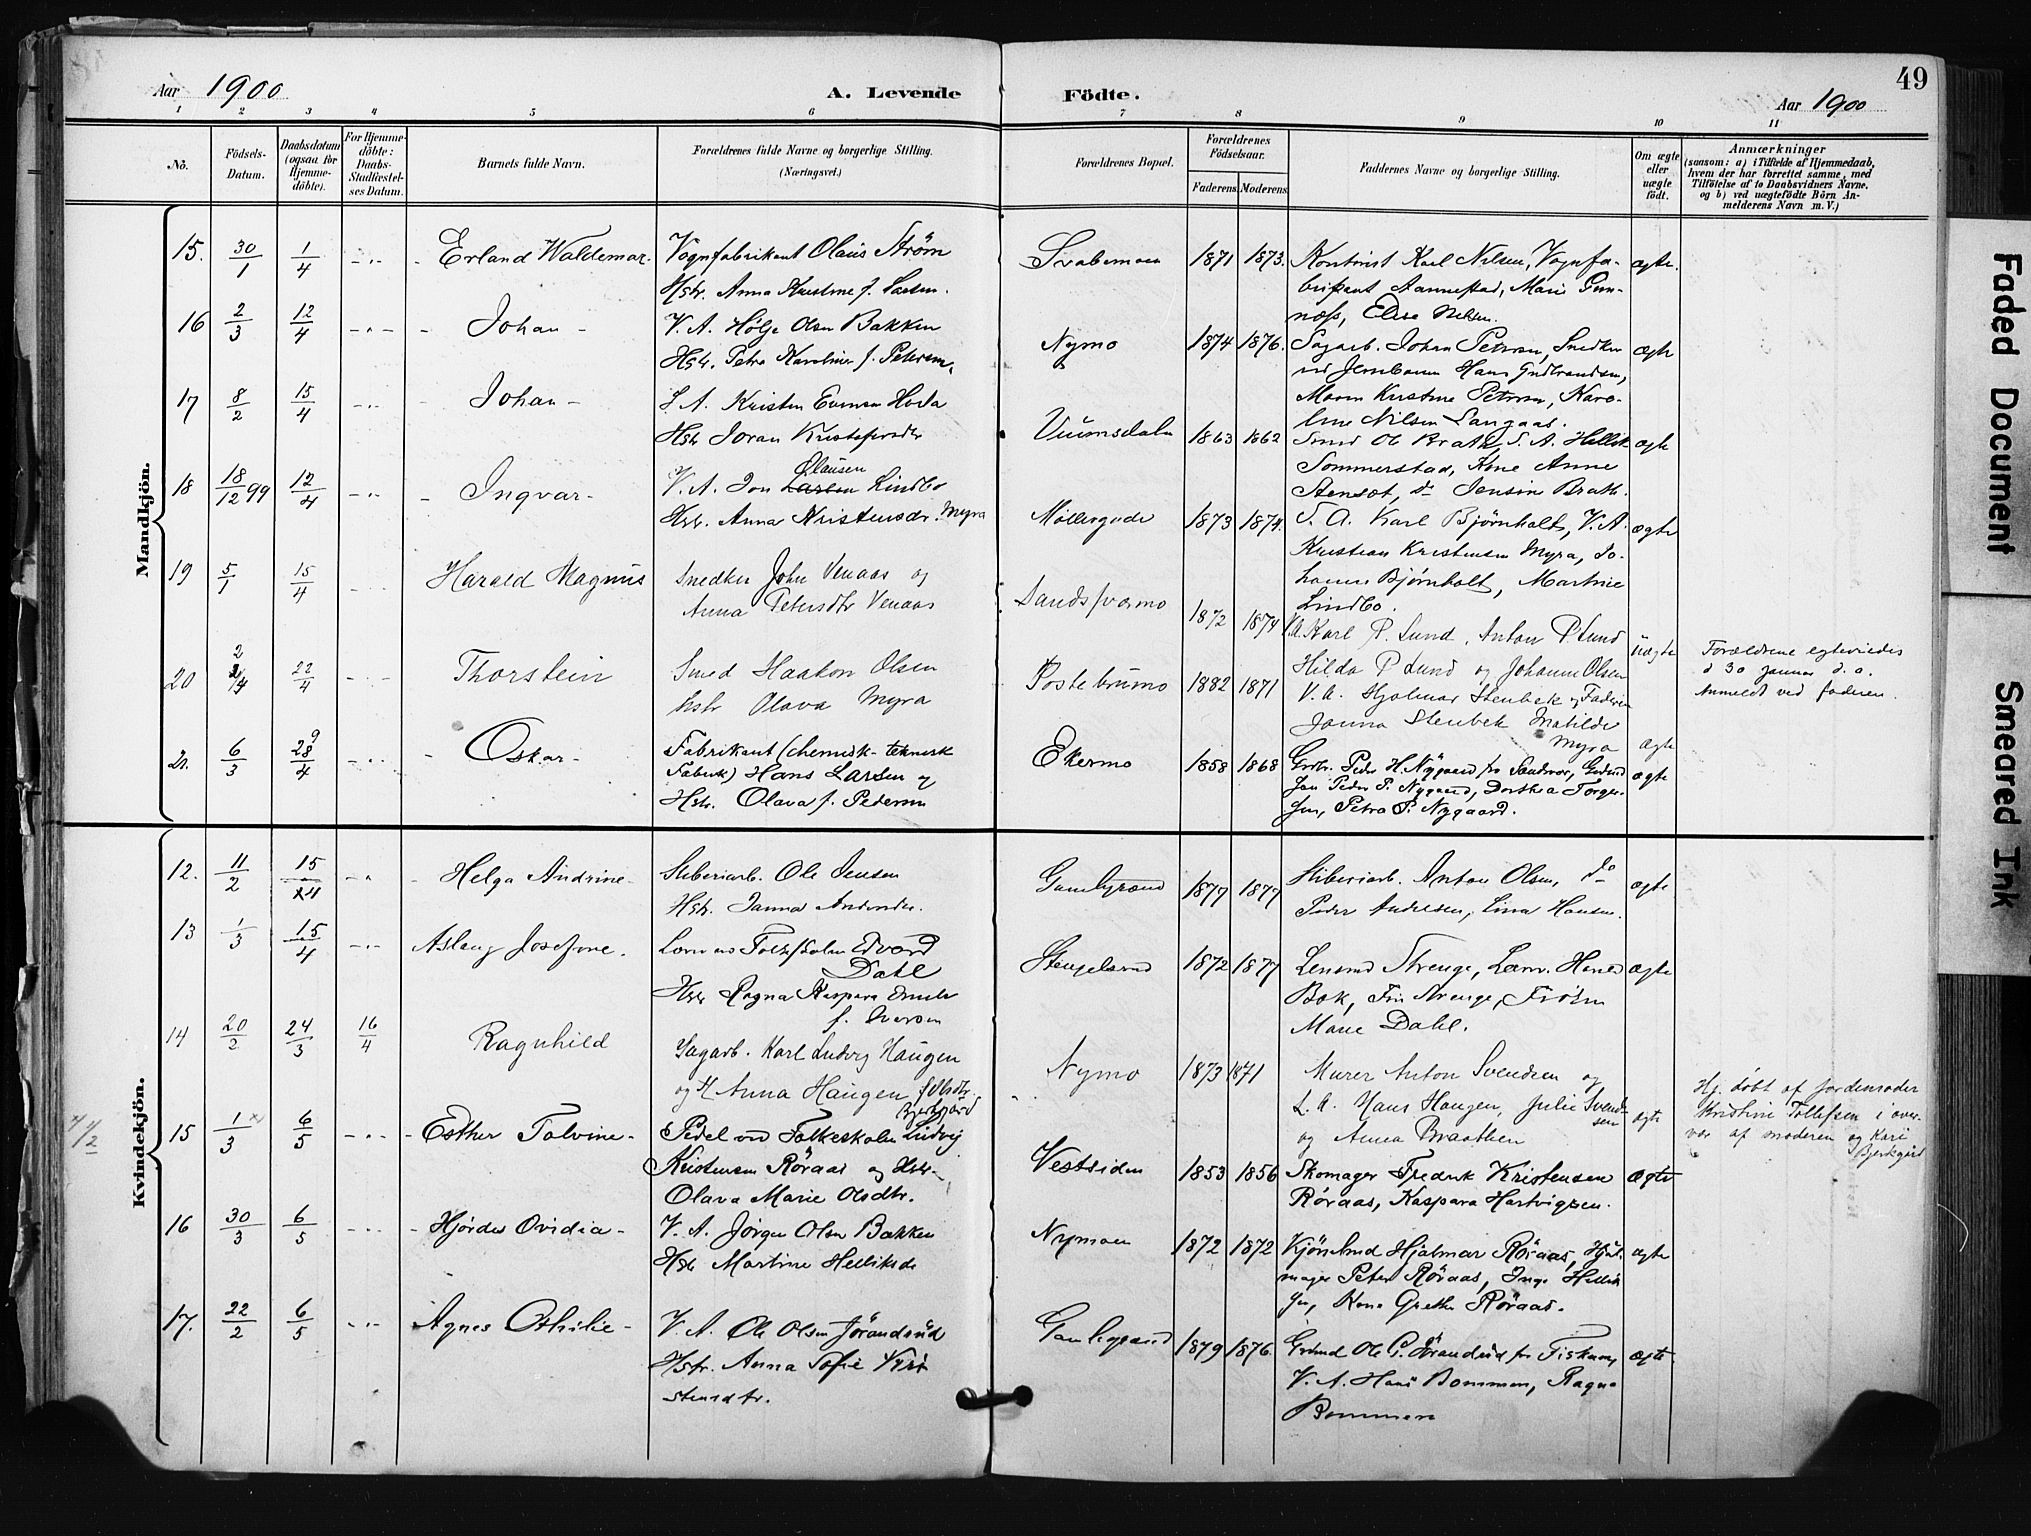 49
Aar 1900
A. Levende Födte.
Aar 1900
1 2 3 4 5 6 7 8 9 10 11
No.
Födsels-Datum.
Daabsdatum (ogsaa for Hjemme-döbte).
For Hjemme-döbte: Daabs-Stadfæstel-ses Datum.
Barnets fulde Navn.
Forældrenes fulde Navne og borgerlige Stilling.
(Næringsvei.)
Forældrenes Bopæl.
Forældrenes Födselsaar.
Faderens Moderens
Faddernes Navne og borgerlige Stilling.
Om ægte eller uægte födt.
Anmærkninger
(saasom: a) i Tilfælde af Hjemmedaab,
hvem der har forrettet samme, med
Tilföielse af to Daabsvidners Navne.
og b) ved uægtefödte Börn An-
melderens Navn m. V.)
Mandkjön.
15. 30/1 1/4 Erland Waldemar. Vognfabrikant Olaus Strøm
Hstr. Anna Kristine f. Larsen.
1871 1873. Kontorist Karl Nilsen, Vognfa-
brikant Aannestad, Marie Gun-
næss, Elise Nelsen. ægte.
16 2/3 12/4 Johan - V. A. Hølje Olsen Bakken
Hstr. Petra Karoline f. Petersen.
Nymo 1874 1876. Sagarb. Johan Petersen, Snedker
ved Jernbanen Hans Gulbrandsen,
Maren Kristine Petersen, Karo-
line Nilsen Langaas. ægte
17 8/2 15/4 Johan - S. A. Kristen Evensen Hvila
Hstr Joran Kristofersdtr
1863 1862 Smed Ole Brath, S. A. Hellik
Sommerstad, Kone Anne
Stenset, do Jensine Brath. ægte
18 18/12 99 12/4 Ingvar - V. A. Jon Larsen Clausen Lindbo
Hstr. Anna Kristensdr. Myra
Møllergade 1873 1874. S. A. Karl Bjørnholt, V. A.
Kristian Kristensen Myra, Jo-
hanne Bjørnholt, Martine
Lindbo. ægte
19 5/1 15/4 Harald Magnus Snedker John Venaas og
Anna Petersdtr Venaas
Sandsværmo 1872 1874 V.A. Karl P. Lund, Anton P. Lund
Hilda P Lund og Johanne Olsen uægte
Forældrene egteviedes
d 30 januar d. a.
Anmeldt ved faderen.
20 2/4 22/4 Thorstein Smed Haakon Olsen
Hstr Olava Myra
Postebrumo 1882 1871 V. A. Hjalmar Stenbek og Faderen
Janna Stenbek Matilde
Myra ægte
21. 6/3 28/4 Oskar - Fabrikant (chemisk-teknisk
Fabrik) Hans Larsen og
Hstr. Olava f. Pedersen
Ekermo 1858 1868 Grbr. Peder H. Nygaard fra Sandsvær, Grdmd
Jan Peder P. Nygaard, Dorthea Torger-
sen, Petra P. Nygaard. ægte
Kvindekjön.
12. 11/2 15/4 Helga Andrine - Sliberiarb. Ole Jensen
Hstr. Janna Andersdr.
Gamlegrænd 1877 1877 Sliberiarb. Anton Olsen, do
Peder Andresen, Lina Hansen. ægte
13 1/3 15/4 Aslaug Josefine. Lærer v. Folkeskolen Edvard
Dahl
Hstr Ragna Kaspara Emilie
f. Iversen
Stengelsrud 1872 1877 Lensmd Strenge, Lærer Harald
Bak, Fru Strenge, Frøken
Marie Dahl. ægte
14 20/2 24/3 16/4 Ragnhild Sagarb. Karl Ludvig Haugen
og H Anna Haugen f. Olsdtr.
Bjerkgaard
Nymo 1873 1871 Murer Anton Svendsen og
S. A. Hans Haugen, Julie Svend-
sen og Anna Braathen egte
Hj. døbt af jordemoder
Kristine Tollefsen i over-
vær af moderen og Kari
Bjerkgård
15 1/3 6/5 Esther Tolvine - Pedel ved Folkeskolen Ludvig
Kristensen Røraas og Hstr.
Olava Marie Olsdtr.
Vestsiden 1853 1856 Skomager Fredrik Kristensen
Røraas, Kaspara Hartvigsen. ægte
16 30/3 6/5 Hjørdis Ovidia - V. A. Jørgen Olsen Bakken
Hstr Martine Helliksdr
Nymoen 1872 1872 Kjøbmd Hjalmar Røraas, Hjul-
mager Peter Røraas, Inga Hellik-
sen, Kone Grethe Røraas. ægte
17. 22/2 6/5 Agnes Othilie - V. A. Ole Olsen Jørandrud
Hstr. Anna Sofie Kri-
stensdtr.
Gamlegrænd 1879 1876 Grdmd Ole G. Jørandrud fra Fiskum,
V. A. Hans Bommen, Ragna
Bommen ægte.
Faded Document
Smeared Ink